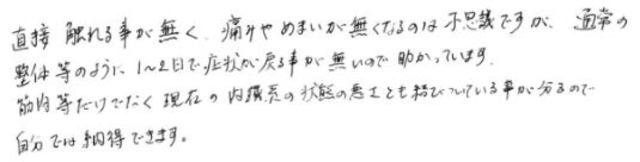 直接 触れる事が無く、痛みやめまいが無くなるのは不思議ですが、通常の
整体等のように1～2日で症状が戻る事が無いので助かっています。
筋肉等だけでなく現在の内臓系の状態の悪さとも結びついている事が分るので
自分では納得できます。